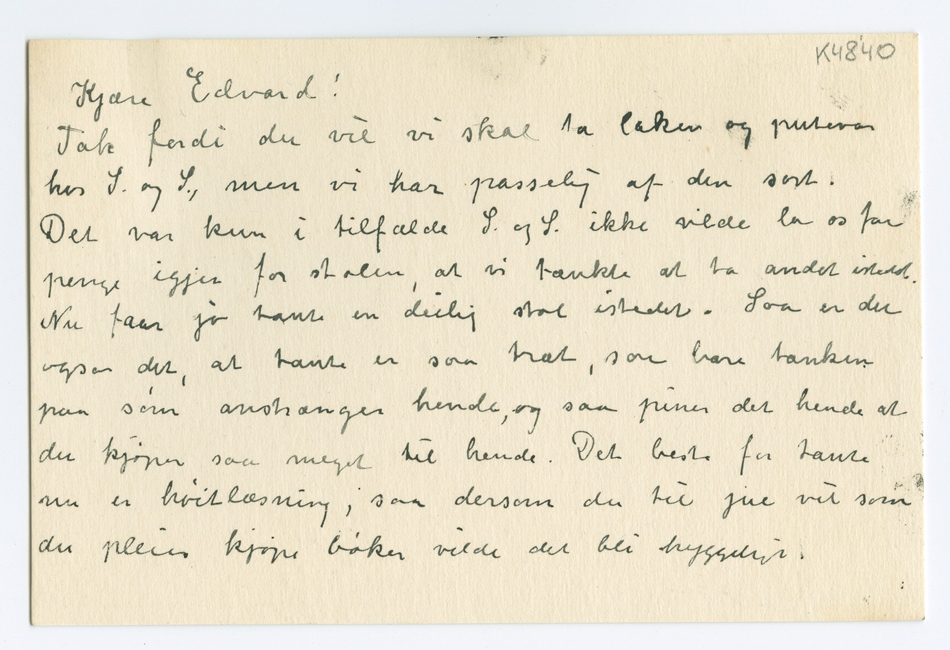 K4840
Kjære Edvard!
Tak fordi du vil vi skal ta laken og putevar
hos S. og S., men vi har passelig af den sort.
Det var kun i tilfælde S. og S. ikke vilde la os faa
penge igjen for stolen, at vi tænkte at ta andet istedet.
Nu faar jo tante en deilig stol istedet. Saa er det
ogsaa det, at tante er saa træt, saa bare tanken
paa søm anstrænger hende, og saa piner det hende at
du kjøper saa meget til hende. Det beste for tante
nu er høitlæsning, saa dersom du til jul vil som
du pleier kjøpe bøker vilde det bli hyggeligt.